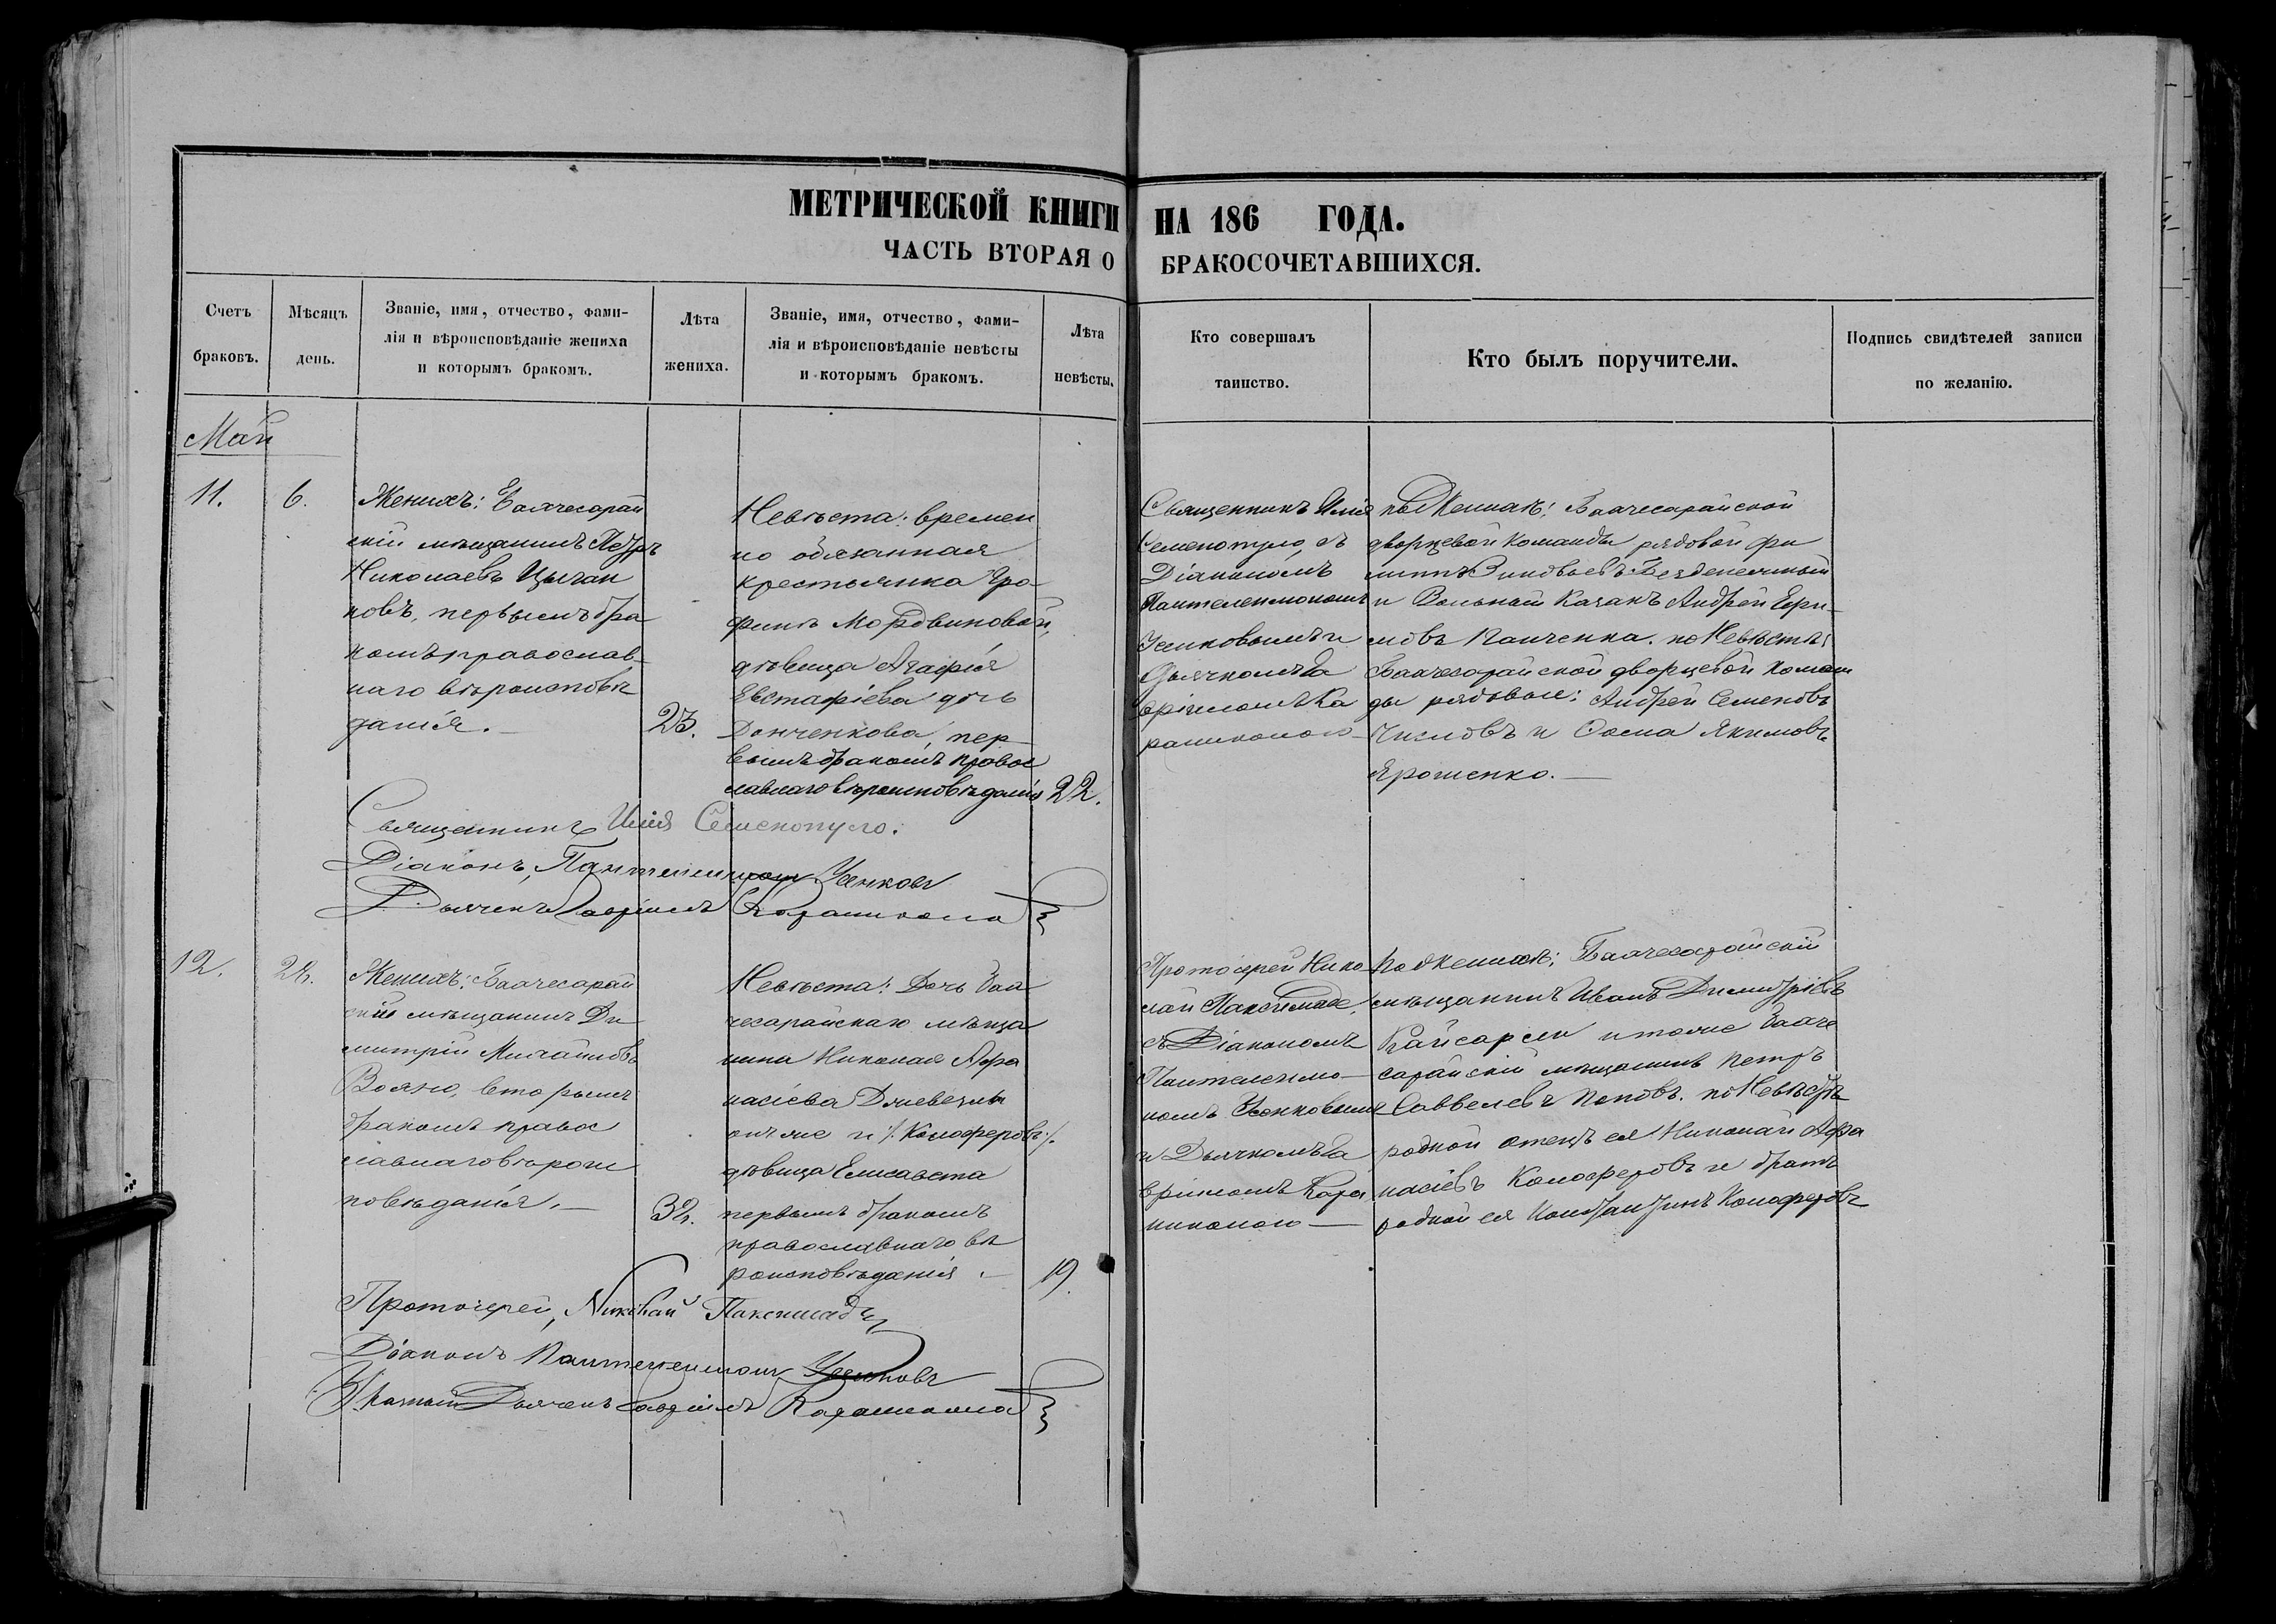 МЕТРИЧЕСКОЙ КНИГИ НА 186 ГОДА.
ЧАСТЬ ВТОРАЯ О БРАКОСОЧЕТАВШИХСЯ.
Счетъ
браковъ.
Мѣсяцъ
день.
Званіе, имя, отчество, фами-
лія и вѣроисповѣданіе жениха
и которымъ бракомъ.
Лѣта
жениха.
Званіе, имя, отчество, фами-
лія и вѣроисповѣданіе невѣсты
и которымъ бракомъ.
Лѣта
невѣсты.
Кто совершалъ
таинство.
Кто былъ поручители.
Подпись свидѣтелей записи
по желанію.
Май
11.
6.
Женихъ: Бахчесарай
скій мѣщанинъ Петръ
Николаевъ Цыган
ковъ, первымъ бра
комъ православ-
наго вѣроисповѣ
данія.
23.
Невѣста: времен
но обязанная
крестьянка Гра-
фини Мордвиновой,
дѣвица Агафія
Евстафіева дочь
Донченкова, пер-
вымъ бракомъ правос
лавнаго вѣроисповѣданія
22.
Священникъ Илія
Семенопуло, съ
Діакономъ
Пантелеимономъ
Усенковымъ и
Дьячкомъ Га
вріиломъ Ка
рашиколою
по Женихѣ: Бахчесарайской
дворцевой команды рядовой Фи
липпъ Зиновьевъ Безденежный
и Вольный Казакъ Андрей Ефи-
мовъ Панченка. по Невѣстѣ:
Бахчесарайской дворцевой коман
ды рядовые: Андрей Семеновъ
Числовъ и Сосма Якимовъ
Ярошенко.
Священникъ Илія Семенопуло.
Діаконъ, Пантелеимонъ Усенковъ
Дьячекъ Гавріилъ Карашикола
12.
Женихъ: Бахчесарай
скій мѣщанинъ Ди
митрій Михайловъ
вторымъ
бракомъ правос
лавнаго вѣроис
повѣданія.
32.
Невѣста: Дочь Бах
чесарайскаго мѣща
нина Николая Афа
насіева
онъ же и /: Калафетовъ :/
дѣвица Елисавета
первымъ бракомъ
православнаго вѣ
роисповѣданія.
19.
Протоіерей Нико
лай Паксимаде,
съ Діакономъ
Пантелеимо-
номъ Усенковымъ
и Дьячкомъ Га
вріиломъ Кара
шиколою
по Женихѣ: Бахчесарайскій
мѣщанинъ Иванъ Димитріевъ
Кайсарли и тоже Бахче
сарайскій мѣщанинъ Петръ
Саввелевъ Поповъ. по Невѣстѣ
родной отецъ ея Николай Афа
насіевъ Калафетовъ и братъ
родной ея Константинъ Калафетовъ
Протоіерей, Николай Паксимадъ
Діаконъ Пантелеимонъ Усенковъ
Дьячекъ Гавріилъ Карашикола